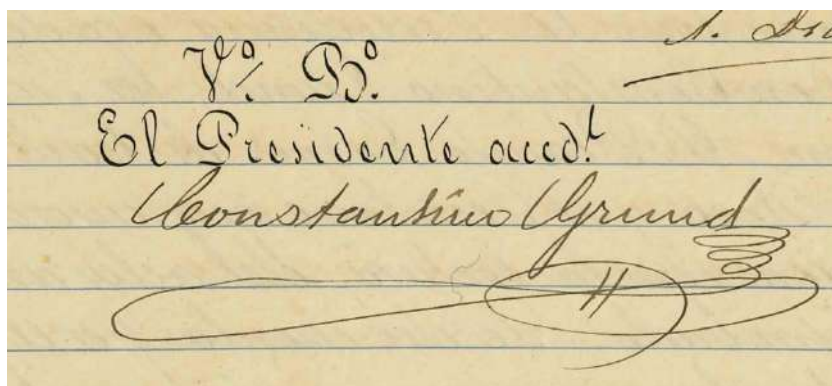 V.º B.º
El Presidente accd.t
Constantino Grund